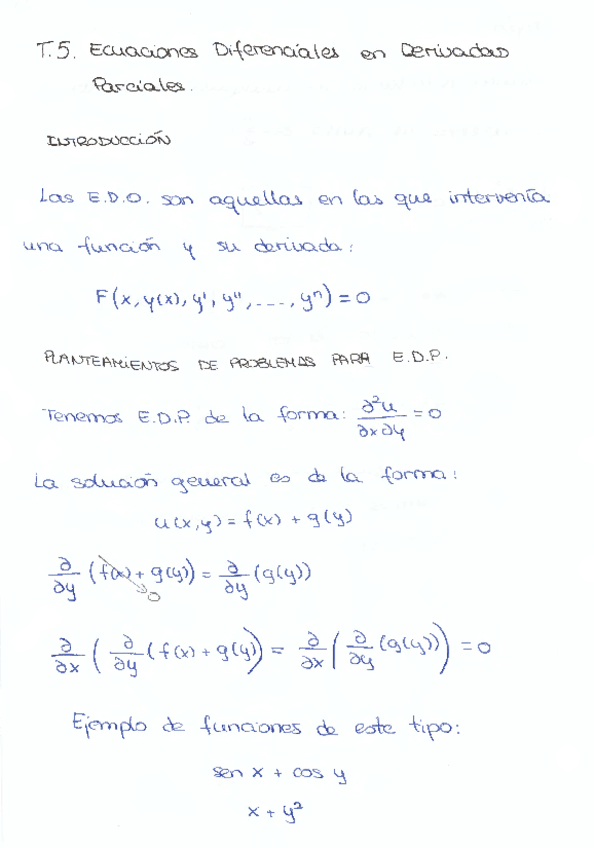 T.5. Ecuaciones Diferenciales en Derivadas
Parciales.
INTRODUCCIÓN
Las E.D.O. son aquellas en las que intervenía
una función y su derivada:
F(x, y(x), y', y'', ----, yⁿ) = 0
PLANTEAMIENTOS DE PROBLEMAS PARA E.D.P.
Tenemos E.D.P. de la forma: ∂²u/∂x∂y = 0
La solución general es de la forma:
u(x,y) = f(x) + g(y)
∂/∂y (f(x) + g(y)) = ∂/∂y (g(y))
0
∂/∂x ( ∂/∂y (f(x) + g(y)) = ∂/∂x ( ∂/∂y (g(y)) ) = 0
Ejemplo de funciones de este tipo:
sen x + cos y
x + y²